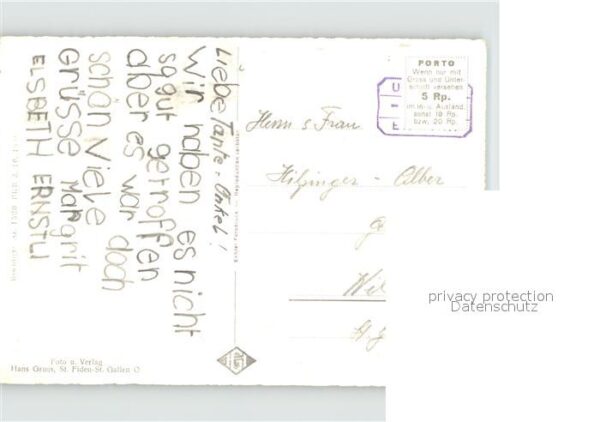 Liebe Tante + Onkel!
Wir haben es nicht
so gut getroffen
aber es war doch
schön Viele
GRüsse MARgrit
ELSBETH ERNSTLI
Foto u. Verlag
Hans Gross, St. Fiden-St. Gallen O
PORTO
Wenn nur mit
Gruss und Unter-
schrift versehen
5 Rp.
im In- u. Ausland,
sonst 10 Rp.
bzw. 20 Rp.
U
E
Herrn & Frau
Hilpinger - Alber
Wil
St. G
privacy protection
Datenschutz